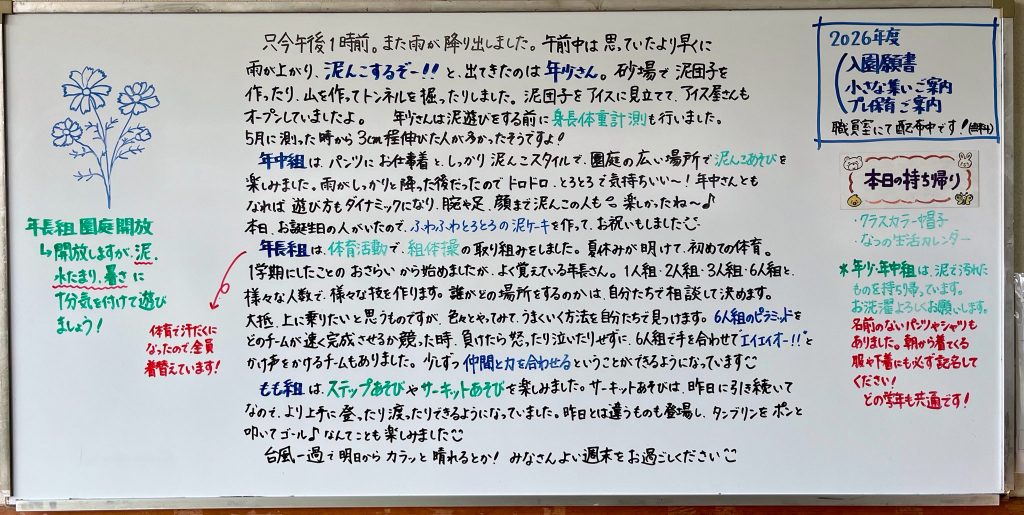 只今午後1時前。また雨が降り出しました。午前中は思っていたより早くに
雨が上がり、泥んこするぞー!!と、出てきたのは年少さん。砂場で泥団子を
作ったり、山を作ってトンネルを掘ったりしました。泥団子をアイスに見立てて、アイス屋さんも
オープンしていましたよ。 年少さんは泥遊びをする前に身長体重計測も行いました。
5月に測った時から3cm程伸びた人が多かったそうですよ!
年中組は、パンツにお仕事着と、しっかり泥んこスタイルで、園庭の広い場所で泥んこあそびを
楽しみました。雨がしっかりと降った後だったのでドロドロ、とろとろで気持ちいい〜!年中さんとも
なれば遊び方もダイナミックになり、腕や足、顔まで泥んこの人も 楽しかったね〜♪
本日、お誕生日の人がいたので、ふわふわとろとろの泥ケーキを作って、お祝いもしました
年長組は、体育活動で、組体操の取り組みをしました。夏休みが明けて、初めての体育。
1学期にしたことのおさらいから始めましたが、よく覚えている年長さん。1人組・2人組・3人組・6人組と、
様々な人数で、様々な技を作ります。誰がどの場所をするのかは、自分たちで相談して決めます。
大抵、上に乗りたいと思うものですが、色々とやってみて、うまくいく方法を自分たちで見つけます。6人組のピラミッドを
どのチームが速く完成させるか競った時、負けたら怒ったり泣いたりせずに、6人組で手を合わせて"エイエイオー!!"と
かけ声をかけるチームもありました。少しずつ仲間と力を合わせるということができるようになっています
もも組は、ステップあそびやサーキットあそびを楽しみました。サーキットあそびは、昨日に引き続いて
なので、より上手に登ったり渡ったりできるようになっていました。昨日とは違うものも登場し、タンブリンをポンと
叩いてゴール♪なんてことも楽しみました
台風一過で明日からカラッと晴れるとか!みなさんよい週末をお過ごしください
年長組園庭開放
↳開放しますが、泥、
水たまり、暑さに
十分気を付けて遊び
ましょう!
体育で汗だくに
なったので全員
着替えています!
2026年度
入園願書
小さな集いご案内
プレ保育ご案内
職員室にて配布中です!(無料)
本日の持ち帰り
・クラスカラー帽子
・なつの生活カレンダー
*年少・年中組は、泥で汚れた
ものを持ち帰っています。
お洗濯よろしくお願いします。
名前のないパンツやシャツも
ありました。朝から着てくる
服や下着にも必ず記名して
ください!
どの学年も共通です!